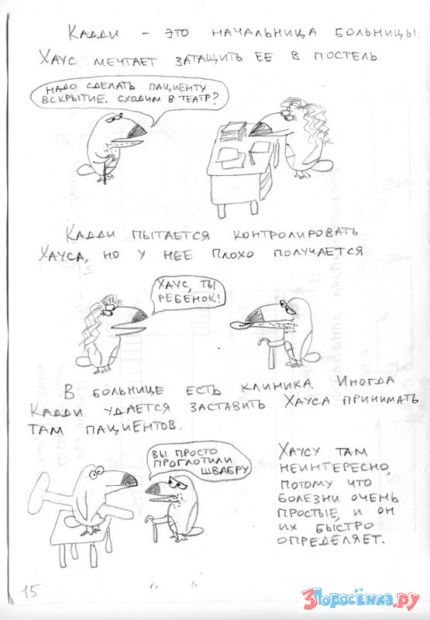 КАДДИ - ЭТО НАЧАЛЬНИЦА БОЛЬНИЦЫ.
ХАУС МЕЧТАЕТ ЗАТАЩИТЬ ЕЕ В ПОСТЕЛЬ.
НАДО СДЕЛАТЬ ПАЦИЕНТУ
ВСКРЫТИЕ. СХОДИМ В ТЕАТР?
КАДДИ ПЫТАЕТСЯ КОНТРОЛИРОВАТЬ
ХАУСА, НО У НЕЕ ПЛОХО ПОЛУЧАЕТСЯ
ХАУС, ТЫ
РЕБЕНОК!
В БОЛЬНИЦЕ ЕСТЬ КЛИНИКА. ИНОГДА
КАДДИ УДАЕТСЯ ЗАСТАВИТЬ ХАУСА ПРИНИМАТЬ
ТАМ ПАЦИЕНТОВ.
ВЫ ПРОСТО
ПРОГЛОТИЛИ
ШВАБРУ
ХАУСУ ТАМ
НЕИНТЕРЕСНО,
ПОТОМУ ЧТО
БОЛЕЗНИ ОЧЕНЬ
ПРОСТЫЕ, И ОН
ИХ БЫСТРО
ОПРЕДЕЛЯЕТ.
15
3Поросёнка.ру